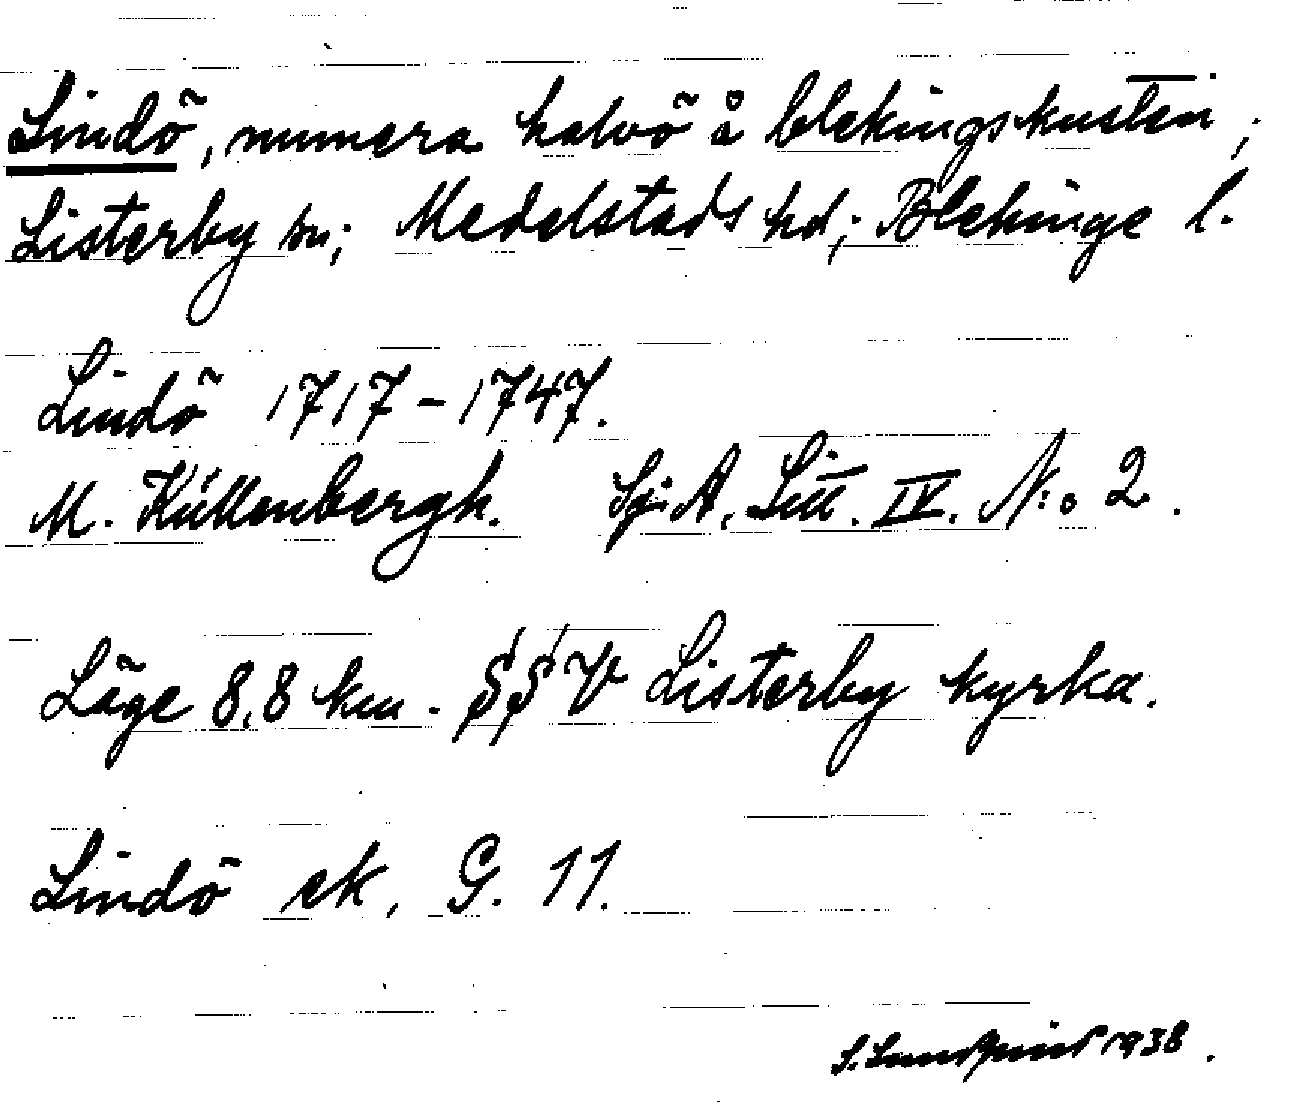 Lindö, numera halvö å blekingskusten;
Listerby sn; Medelstads hd; Blekinge l.
Lindö 1717-1747.
M. Küllenbergh. Sj. A. Litt. IV. N:o 2.
Läge 8,8 km. SSV Listerby kyrka.
Lindö ek, G. 11.
S. Sundqvist 1938.